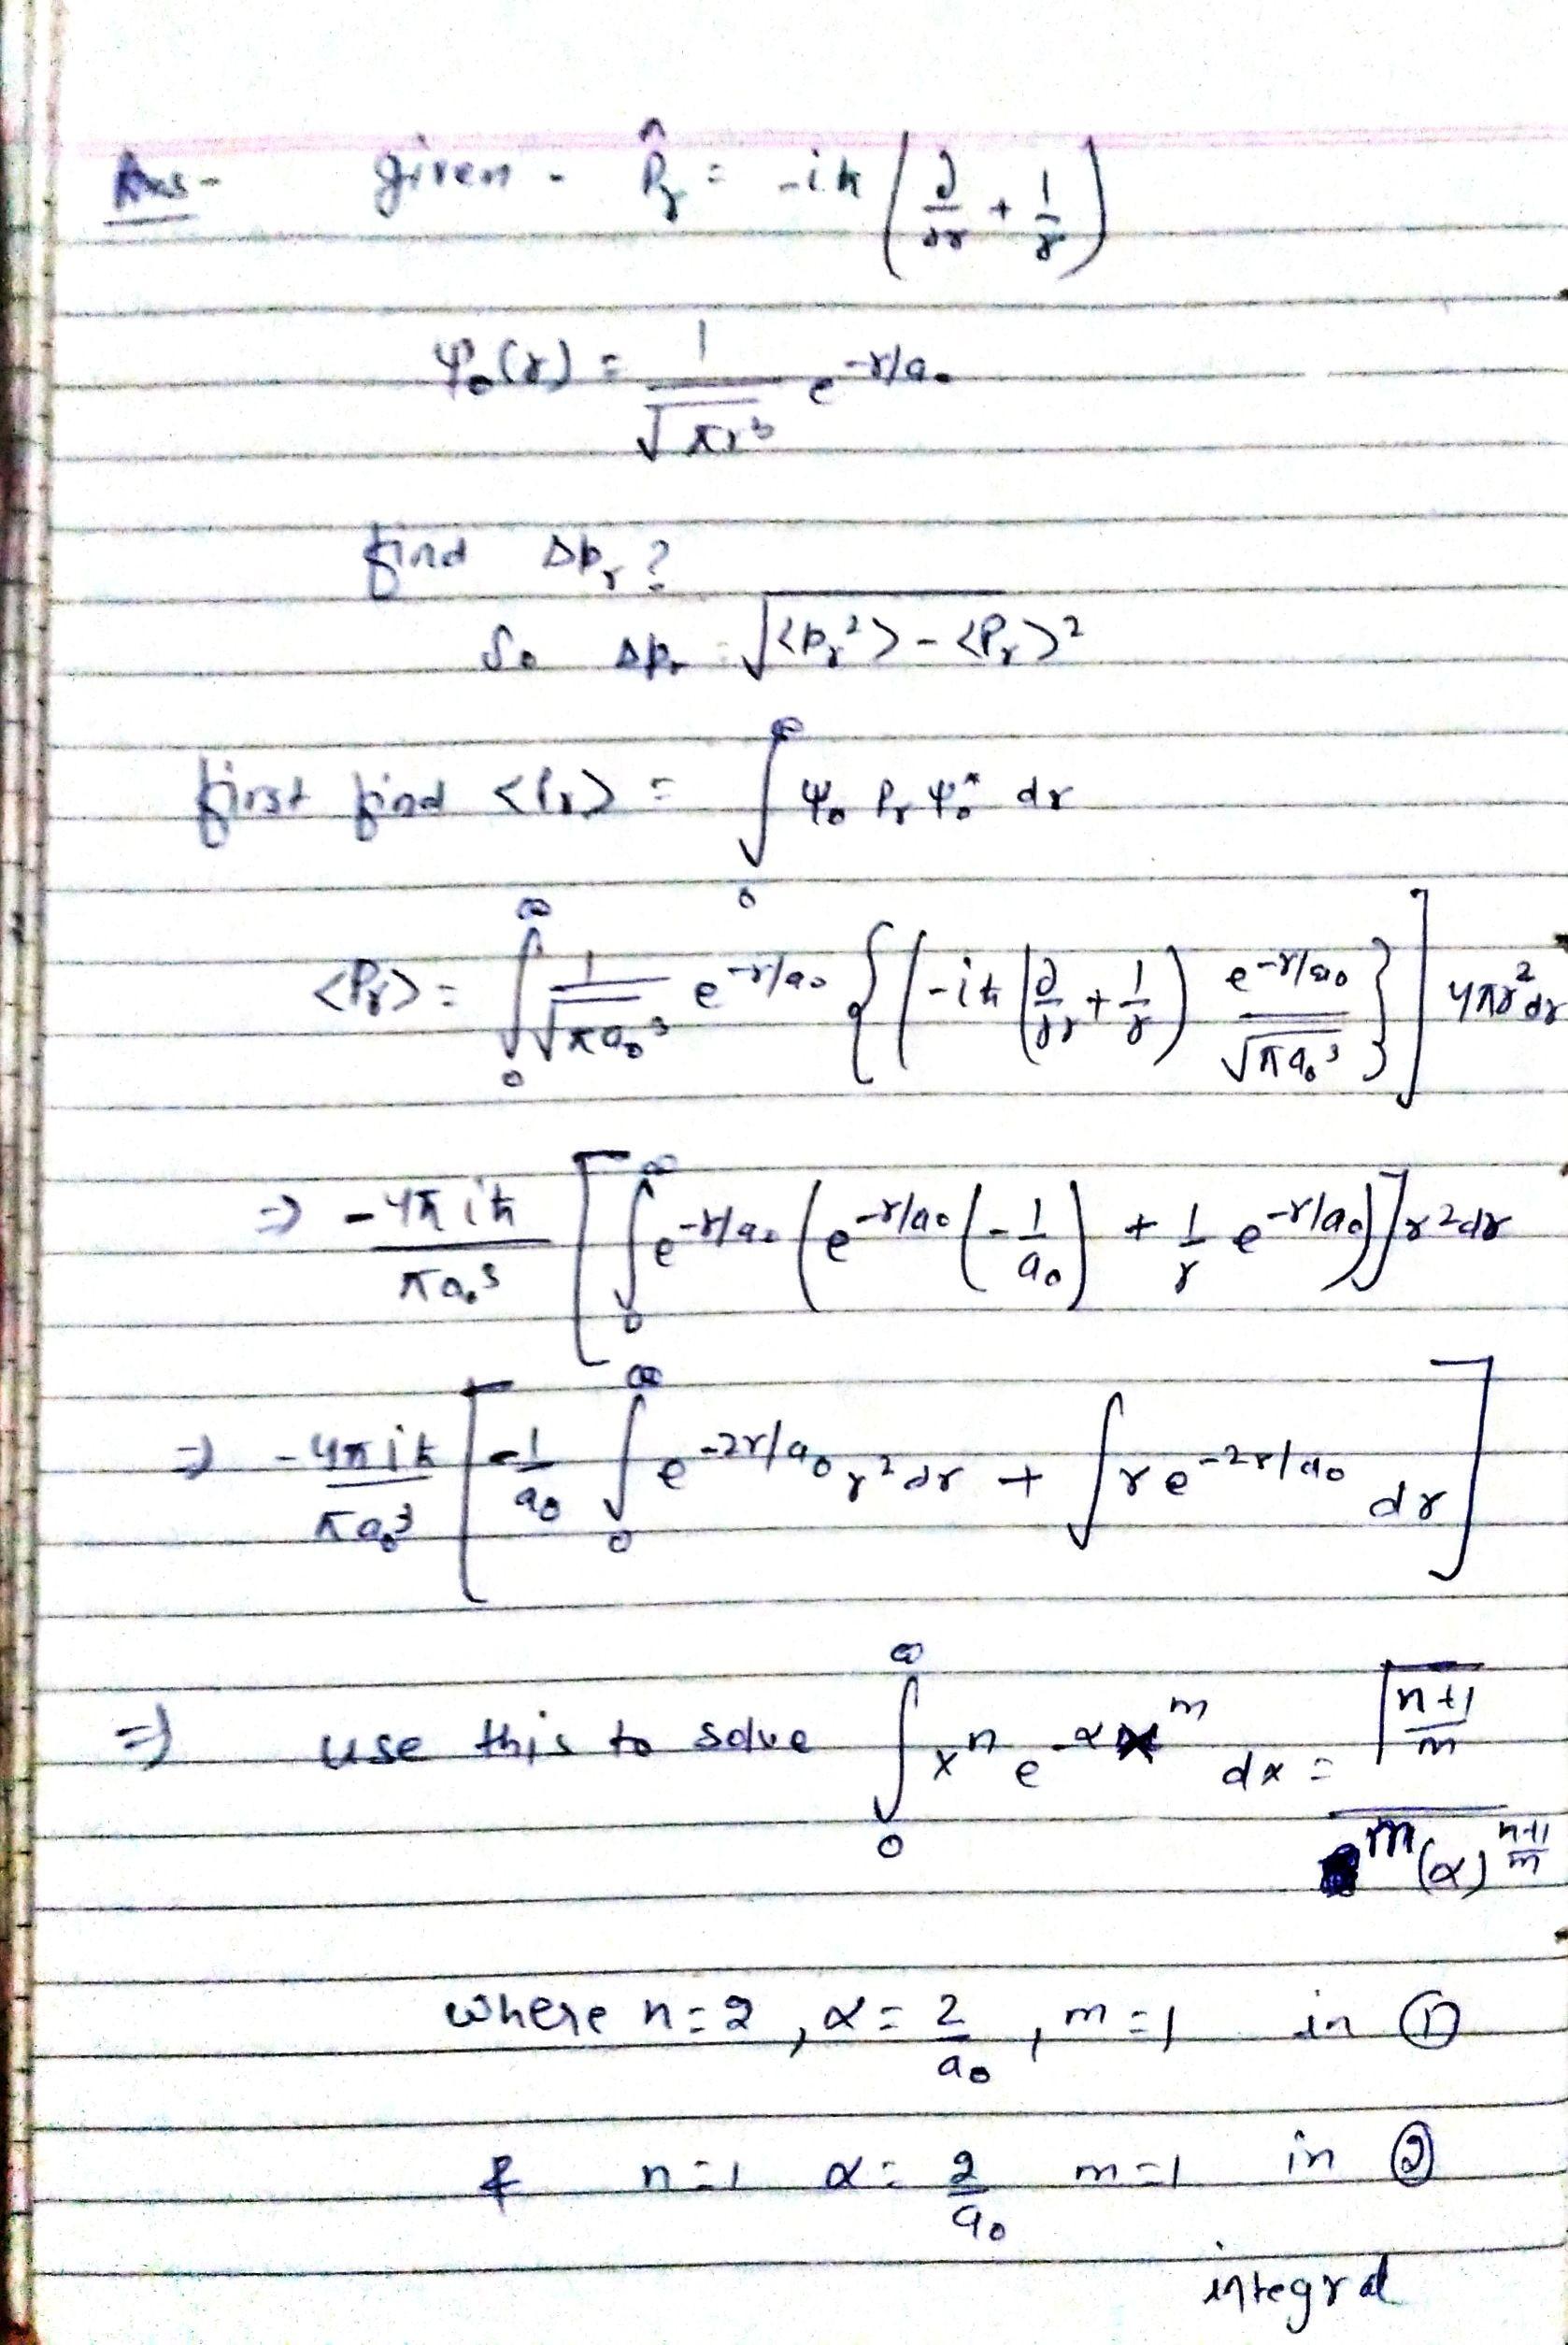 Ans- given - P̂r = -iħ (∂/∂r + 1/r)
Ψ0(r) = 1/√πr³ e^-r/a0
find Δpr?
So Δpr = √<pr²> - <Pr>²
first find <Pr> = ∫0^∞ Ψ0 Pr Ψ0* dr
<Pr> = ∫0^∞ 1/√πa0³ e^-r/a0 {(-iħ (∂/∂r + 1/r) e^-r/a0/√πa0³}] 4πr²dr
⇒ -4πiħ/πa0³ [∫0^∞ e^-r/a0 (e^-r/a0 (-1/a0) + 1/r e^-r/a0)] r²dr
⇒ -4πiħ/πa0³ [-1/a0 ∫0^∞ e^-2r/a0 r²dr + ∫ r e^-2r/a0 dr]
⇒ use this to solve ∫0^∞ x^n e^-αx^m dx = Γ(n+1/m) / m(α)^(n+1/m)
where n=2, α=2/a0, m=1 in ①
& n=1 α=2/a0 m=1 in ②
integral